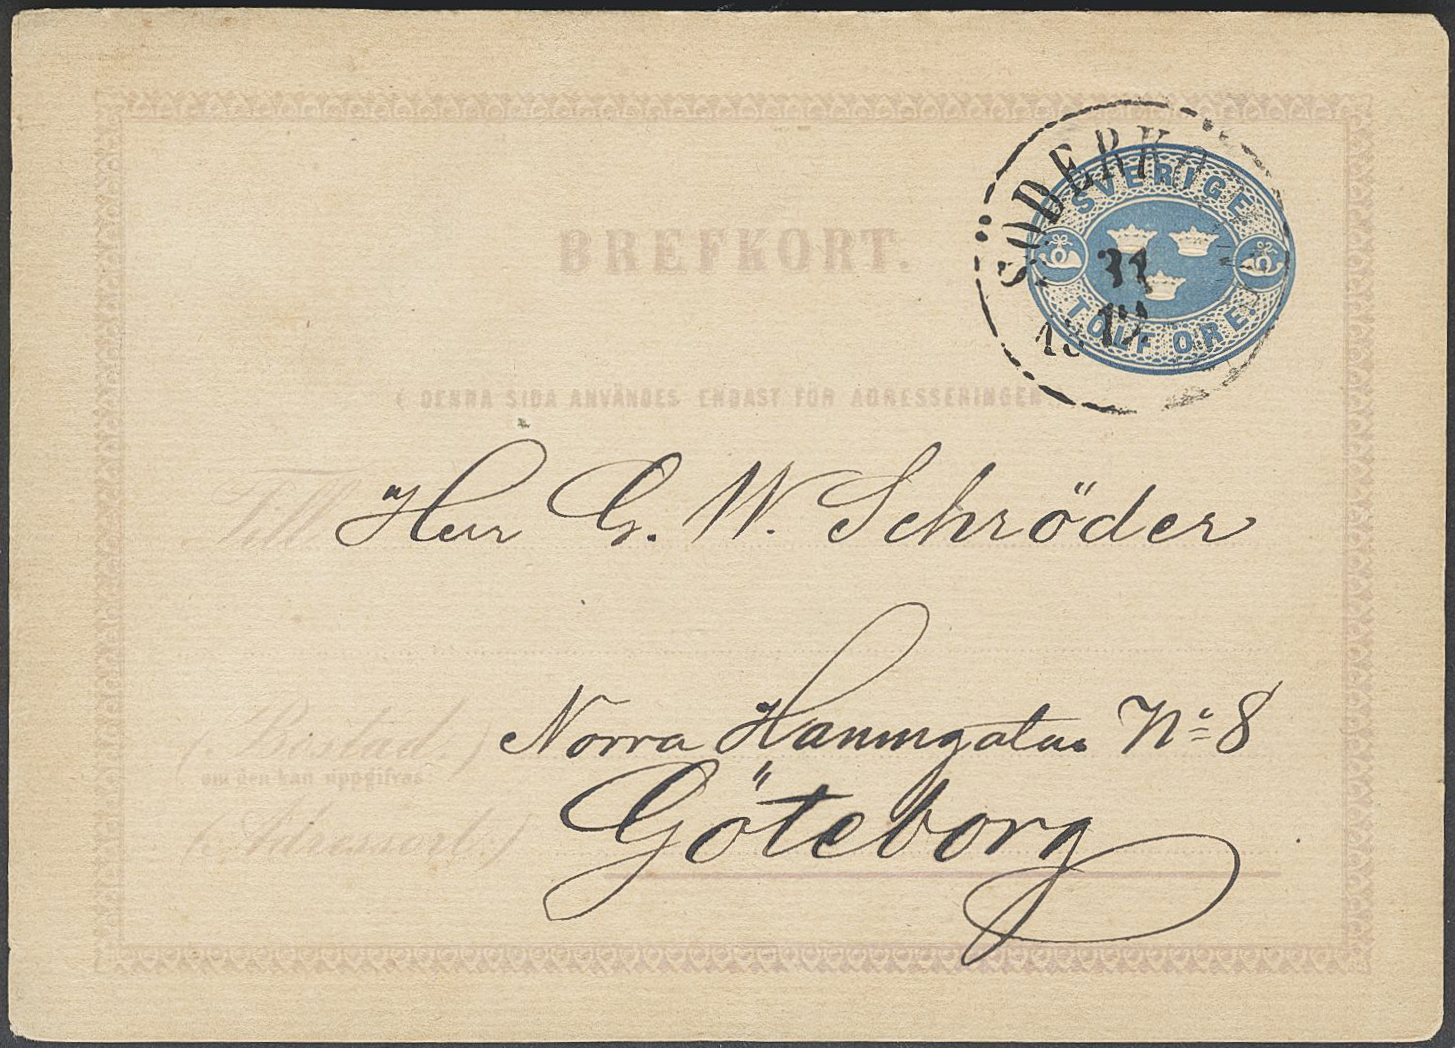 SVERIGE
TOLF ÖRE
31
12
BREFKORT.
( DENNA SIDA ANVÄNDES ENDAST FÖR ADRESSERINGEN
Till Herr G. W. Schröder
Norra Hamngatan No 8
(Bostad.)
om den kan uppgifvas
(Adressort.) Göteborg